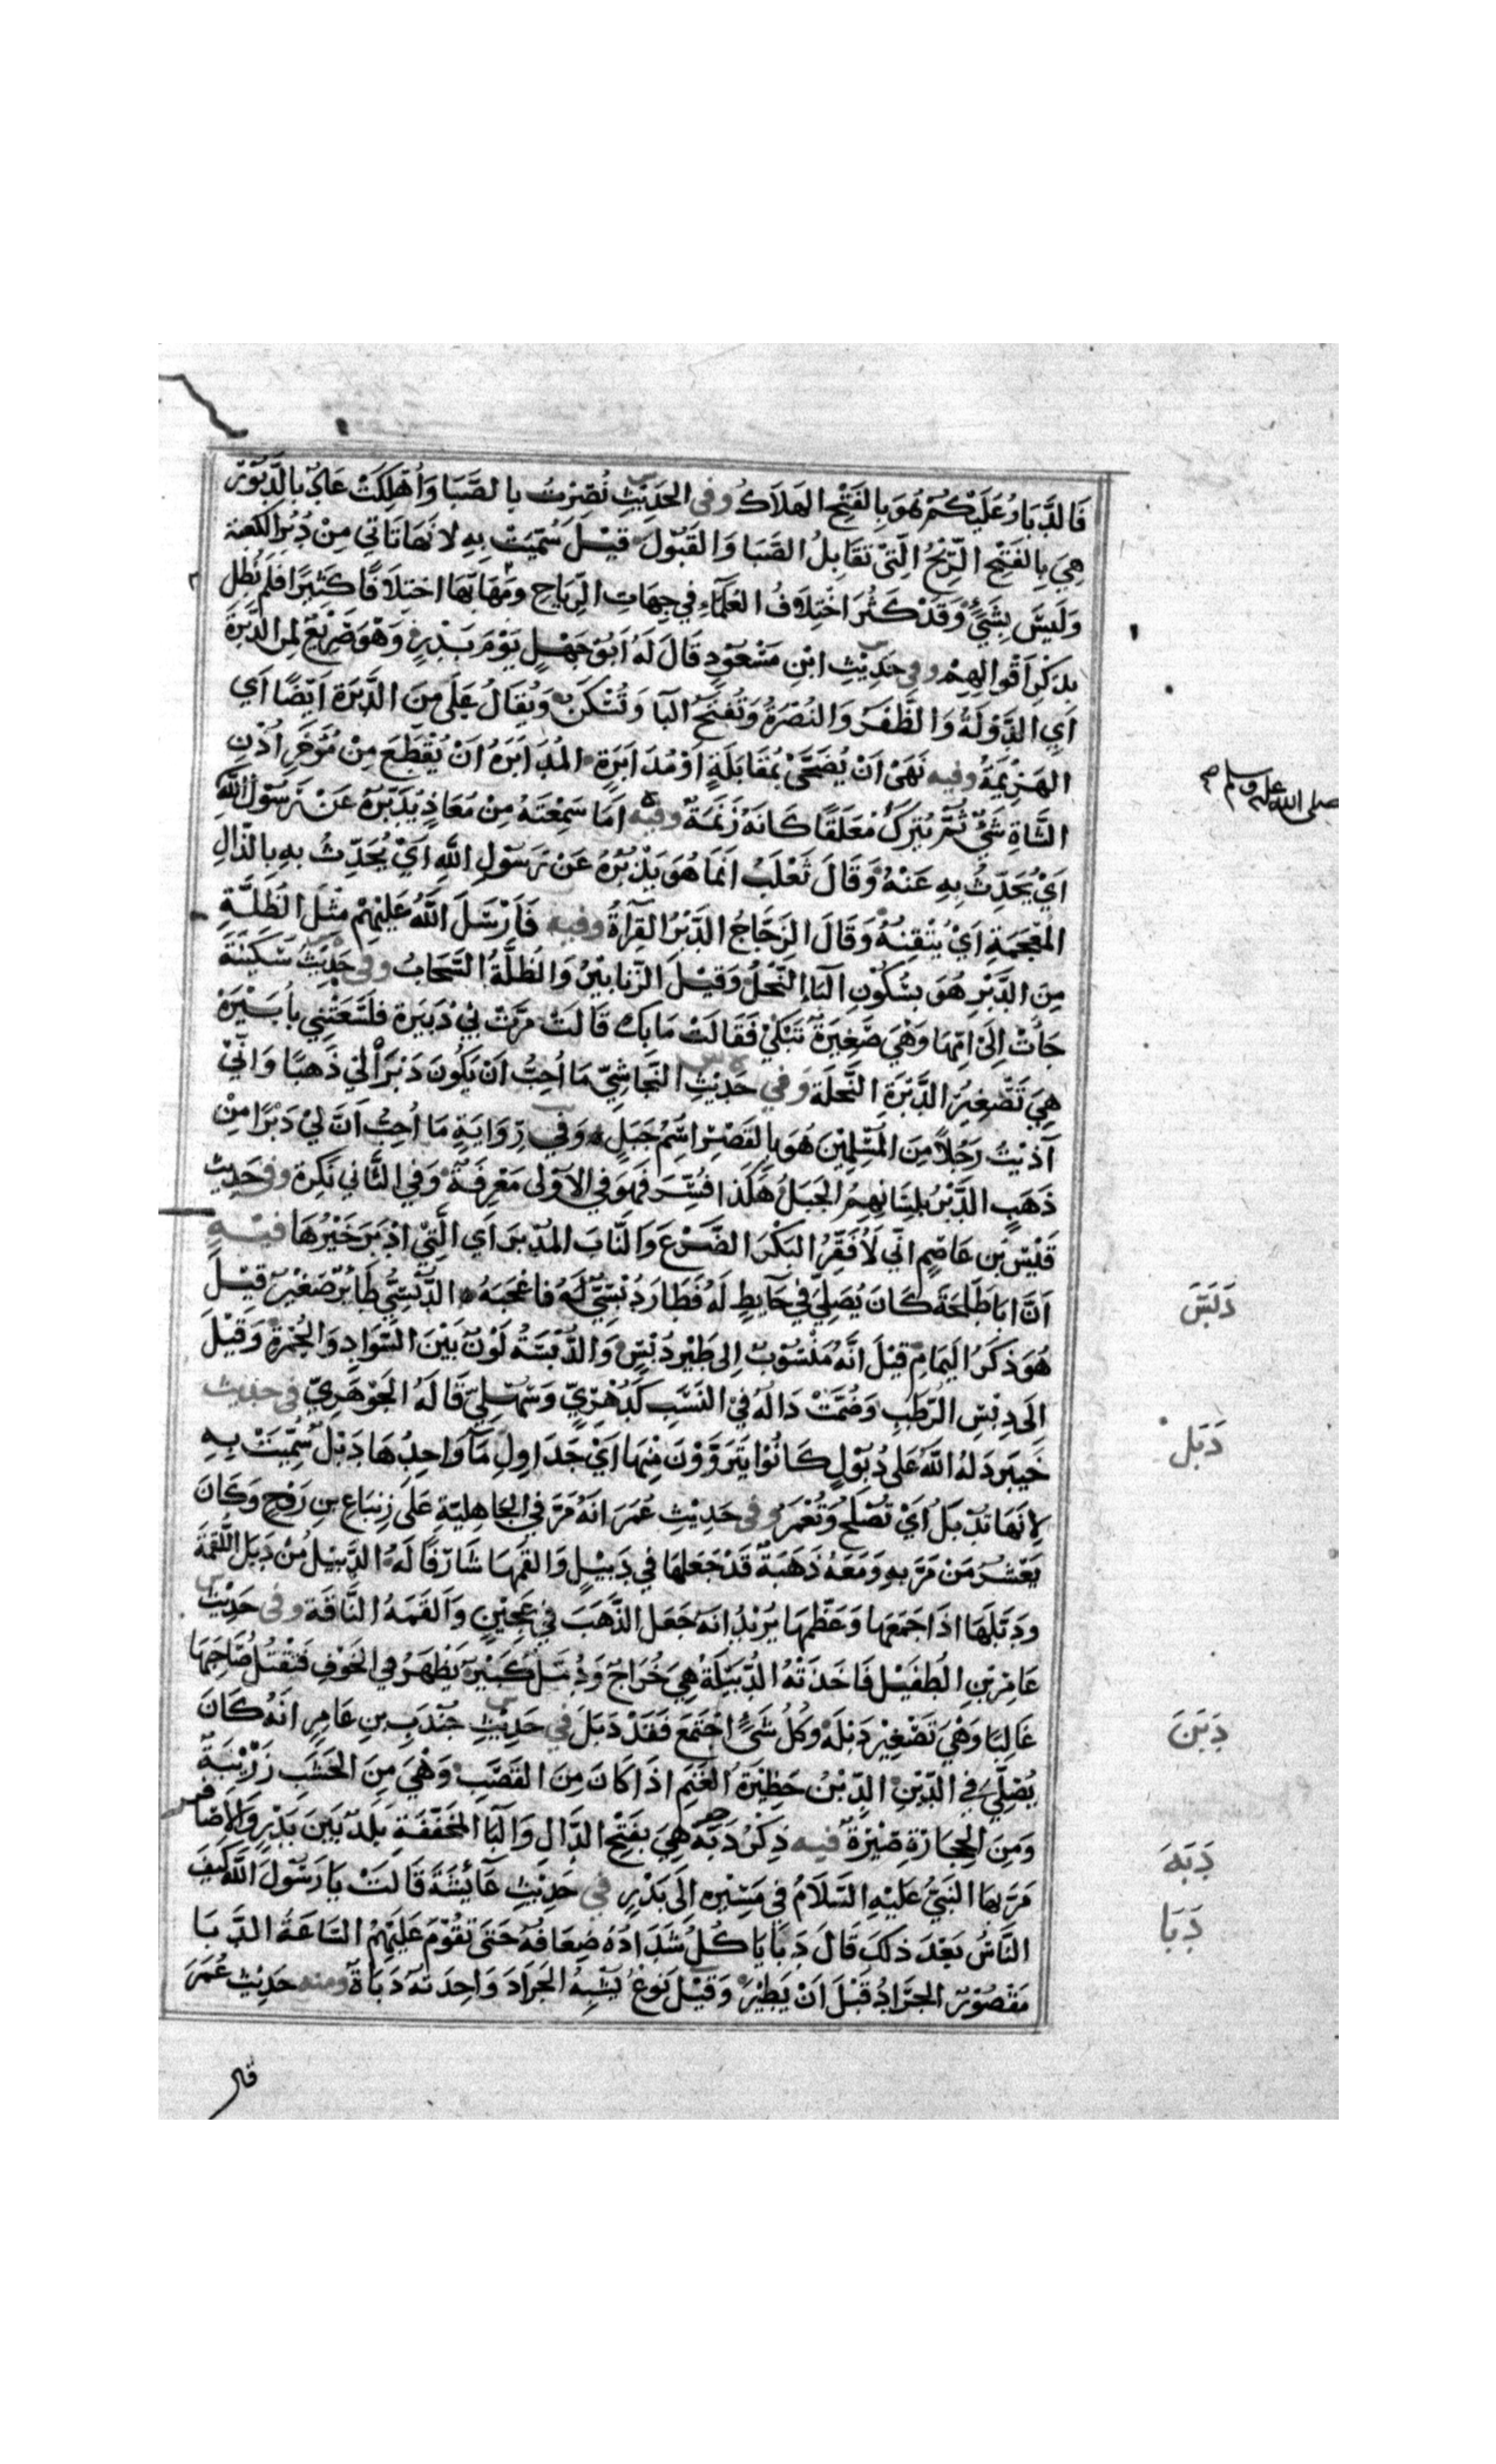 فَالدَّبَارُ عَلَيْكُمْ هُوَ بِالفَتْحِ الهَلَاكُ وفى الحَدِيْثِ نُصِرْتُ بِالصَّبَا وَاُهْلِكَتْ عَادٌ بِالدَّبُوْرِ
هِيَ بِالفَتْحِ الرِّيْحُ الَّتِيْ تُقَابِلُ الصَّبَا وَالقَبُوْلَ قِيْلَ سُمِّيَتْ بِهِ لانَهَا تَاتِي مِنْ دُبُرِ الكَعبَة
وَلَيْسَ بِشَيٍْ وَقَدْ كَثُرَ اخْتِلَافُ العُلَمَآءِ فِي جِهَاتِ الرِّيَاحِ وَمَهَابِّهَا اختِلَافًا كَثِيْرًا فَلَم نُطِل
بِذِكْرِ اَقْوَالِهِمْ وفى حَدِيْثِ ابْنِ مَسْعُوْدٍ قَالَ لَهُ اَبُوْ جَهْلٍ يَوْمَ بَدْرٍ وَهْوَ صَرِيْعٌ لِمَنِ الدَّبْرَةُ
اَيِ الدَّوْلَةُ وَالظَّفَرُ وَالنُصْرَةُ وَتُفْتَحُ البَا وَتُسْكَنُ وَيُقَالُ عَلَى مَنِ الدَّبْرَة اَيْضًا اَي
الهَزِيْمَةُ وفيه نَهَى اَنْ يُضَحَّىْ بِمُقَابَلَةٍ اَوْ مُدَابَرَةٍ المُدَابَرَةُ اَنْ يُقْطَعَ مِنْ مُؤَخَّرِ اُذُنِ
الشَّاةِ شَيٌْ ثُمَّ يُتْرَكُ مُعَلَقًا كَانَهُ زَنَمَةٌ وفيه اَمَا سَمِعْتَهُ مِنْ مُعَاذٍ يُدَبِّرُهُ عَنْ رَسُوْلِ اللّٰهِ
صلى الله عليه وسلم صح
اَيْ يُحَدِّثُ بِهِ عَنْهُ وَقَالَ ثَعْلَبُ اِنَّمَا هُوَ يَذْبُرُهُ عَنْ رَسُوْلِ اللَّهِ اَيْ يُحَدِّثُ بِهِ بِالذَّالِ
المُعْجَمَةِ اَيْ يُتْقِنُهُ وَقَالَ الزَجَّاجُ الدَّبْرُ القِرَاةُ وفيه فَاَرْسَلَ اللَّهُ عَلَيْهِمْ مِثْلَ الظُلَّةِ
مِنَ الدَّبْرِ هُوَ بِسُكُوْنِ البَاءِ النَّحْلُ وَقِيْلَ الزَّنَابِيْرُ وَالظُلَّةُ السَّحَابُ وفى حَدِيْثِ سَكِيْنَةَ
جَأَتْ اِلَى اُمِّهَا وَهْيَ صَغِيْرَةٌ تَبْكِيْ فَقَالَتْ مَا بِكِ قَالَتْ مَرَّتْ بِيْ دُبَيْرَة فلَسَعَتْنِي بِاُبَيْرَة
هِيَ تَصْغِيْرُ الدَّبْرَةِ النَّحلَة وَفي حَدِيْثِ النَّجَاشِيِّ مَا اُحِبُّ اَنْ يَكُوْنَ دَبْرَاْ لِيْ ذَهَبًا وَانِّيْ
آذَيْتُ رَجُلًا مِنَ المُسْلِمِيْنَ هُوَ بِالقَصْرِ اسْمُ جَبَلٍ وَفِي رِوَايَةٍ مَا اُحِبُّ اَنَّ لِيْ دَبْرًا مِنْ
ذَهَبٍ الدَّبْرُ بِلِسَانِهِمُ الجَبَلُ هَكَذَا فُسِّرَ فَهوَ فِي الاُوْلَى مَعْرِفَةٌ وَفِي الثَّانِي نَكِرَة وفى حَدِيث
قَيْسِ بْنِ عَاصِمٍ اِنِّي لَأُفْقِرُ البَكْرَ الضَّرَعَ وَالنَّابَ المُدْبِرَ اَيِ الَّتِيْ اَدْبَرَ خَيْرُهَا فيه
دَبَسَ
اَنَّ اَبَا طَلْحَةَ كَانَ يُصَلِّيَ فِيْ حَآيِطٍ لَهُ فَطَارَ دُبْسِيٌّ لَهُ فاَعْجَبَهُ الدُّبْسِيُّ طَائِرٌ صَغِيْرٌ قِيْلَ
هُوَ ذَكَرُ اليَمَامِ قِيْلَ اَنَّهُ مَنْسُوْبٌ اِلَى طَيْرِ دُبْسٍ وَالدُّبْسَةُ لَوْنٌ بَيْنَ السَّوَادِ وَالحُمْرَةِ وَقِيْلَ
اِلَى دِبْسِ الرُّطَبِ وَضُمَّتْ دَالُهُ فِي النَسَبِ كَدُهْرِيٍّ وَسُهْلِيٍّ قَالَهُ الجَوْهَرِيّ فى حديث
دَبَلَ
خَيْبَر دَلَهُ اللَّهُ عَلَى دُبُوْلٍ كَانُوْا يَتَرَوَّوْنَ مِنْهَا اَيْ جَدَاوِلِ مَآ وَاحِدُهَا دَبْلٌ سُمِّيَتْ بِهِ
لِاَنَهَا تُدْبَلُ اَيْ تُصْلَحُ وَتُعْمَرُ وفى حَدِيْثِ عُمَرَ اَنَهُ مَرَّ فِي الجَاهِلِيَّةِ عَلَى زِنْبَاعِ بنِ رَوْحٍ وَكَانَ
يَعْشُرُ مَنْ مَرَّ بِهِ وَمَعَهُ ذَهَبَةٌ قَدْ جَعَلَهَا فِي دَبِيْلٍ وَالقَمَهَا شَارِفًا لَهُ الدَّبِيْلُ مِنْ دَبَلَ اللُّقْمَةَ
وَدَبَّلَهَا اذَا جَمَعَهَا وَعَظَّمَهَا يُرِيْدُ اَنَهُ جَعَلَ الذَّهَبَ فِي عَجِيْنٍ وَاَلقَمَهُ النَّاقَة وفى حَدِيْثِ
عَامِرِ بْنِ الطُفَيْلِ فَاَخَذَتْهُ الدُّبَيْلَةُ هِيَ خُرَاجٌ وَدُمَّلٌ كَبِيْرٌ يَظْهَرُ فِي الجَوْفِ فَتَقْتُلُ صَاحِبَهَا
غَالِبًا وَهْيَ تَصْغِيْرُ دَبْلَةٍ وَكُلُّ شَيٍْ اجْتَمَعَ فَقَدْ دَبَلَ في حَدِيْثِ جُنْدَبِ بنِ عَامِرٍ اَنَهُ كَانَ
دَبَنَ
يُصَلِّيَ فِي الدِّبْنِ الدِّبْنُ حَظِيْرَةُ الغَنَمِ اذَا كَانَ مِنَ القَصَبِ وَهْيَ مِنَ الخَشَبِ زَرْيَبَةٌ
وَمِنَ الحِجَارَةِ صِيْرَةٌ فيه ذِكْرُ دَبَّة هِيَ بِفَتْحِ الدَّالِ وَالبَا المُخَفَّفَةِ بَلَدٌ بَيْنَ بَدْرٍ وَالاَصَافر
دَبَهَ
مَرَّ بِهَا النَبِيُّ عَلَيْهِ السَّلَامُ فِي مَسِيْرِهِ اِلَى بَدْرٍ في حَدِيْثِ عَآئِشَةَ قَالَتْ يَا رَسُوْلَ اللَّه كَيْفَ
دَبَا
النَّاسُ بَعْدَ ذلِكَ قَالَ دَبًا يَاكُلُ شِدَادُهُ ضِعَافَهُ حَتَى تَقُوْمَ عَلَيْهِمُ السَّاعَةُ الدَّبَا
مَقْصُوْرٌ الجَرَادُ قَبْلَ اَنْ يَطِيْرَ وَقِيْلَ نَوْعٌ يُشْبِهُ الجَرَادَ وَاحِدَتُهُ دَبَاةٌ ومنه حَدِيْث عُمَرَ